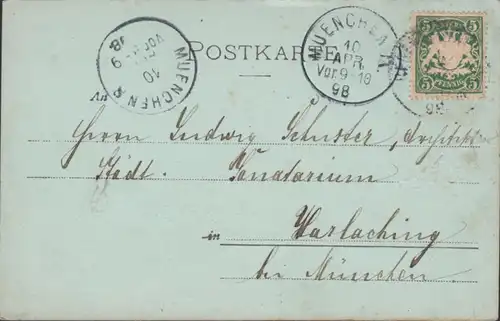 POSTKARTE
MUENCHEN
10
APR.
Vor.9-10
98
5 5
PFENNIG
5 5
98
MUENCHEN
10
98
An
Herrn Ludwig Schuster, Architekt
Städt. Sanatorium
in Harlaching
bei München.